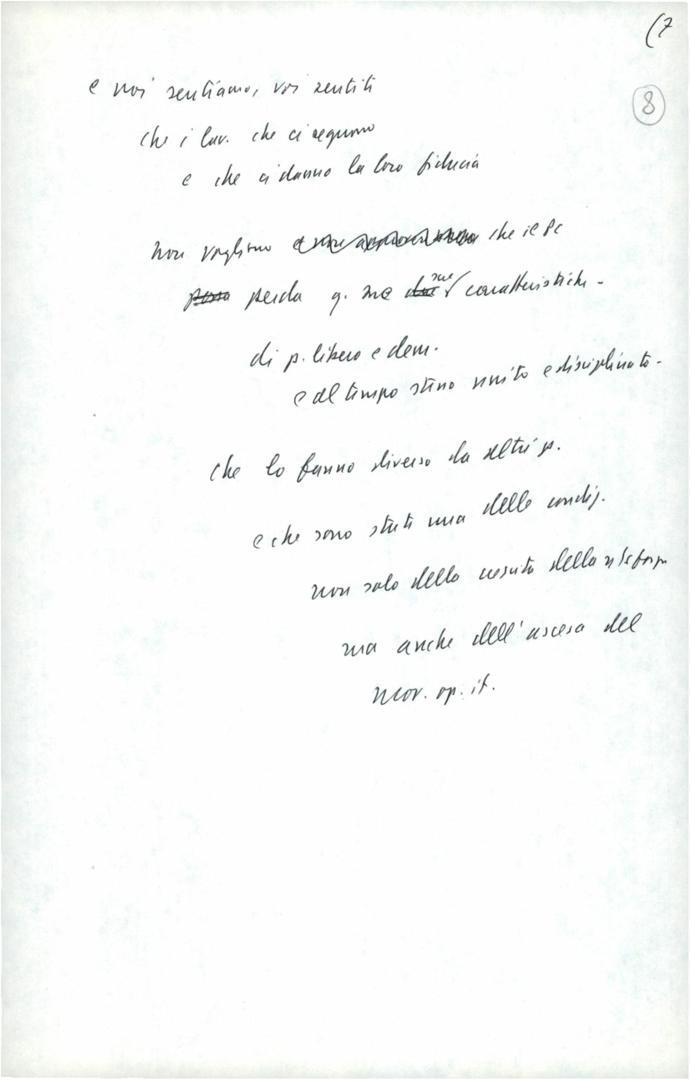 (7
8
e noi sentiamo, voi sentiti
che i lav. che ci seguono
e che ci danno la loro fiducia
non vogliono che il PC
perda q. sue caratteristiche
di p. libero e dem.
e al tempo stesso unito e disciplinato
che lo fanno diverso da altri p.
e che sono state una delle condiz.
non solo della nostra forza
ma anche dell'ascesa del
mov. op. it.